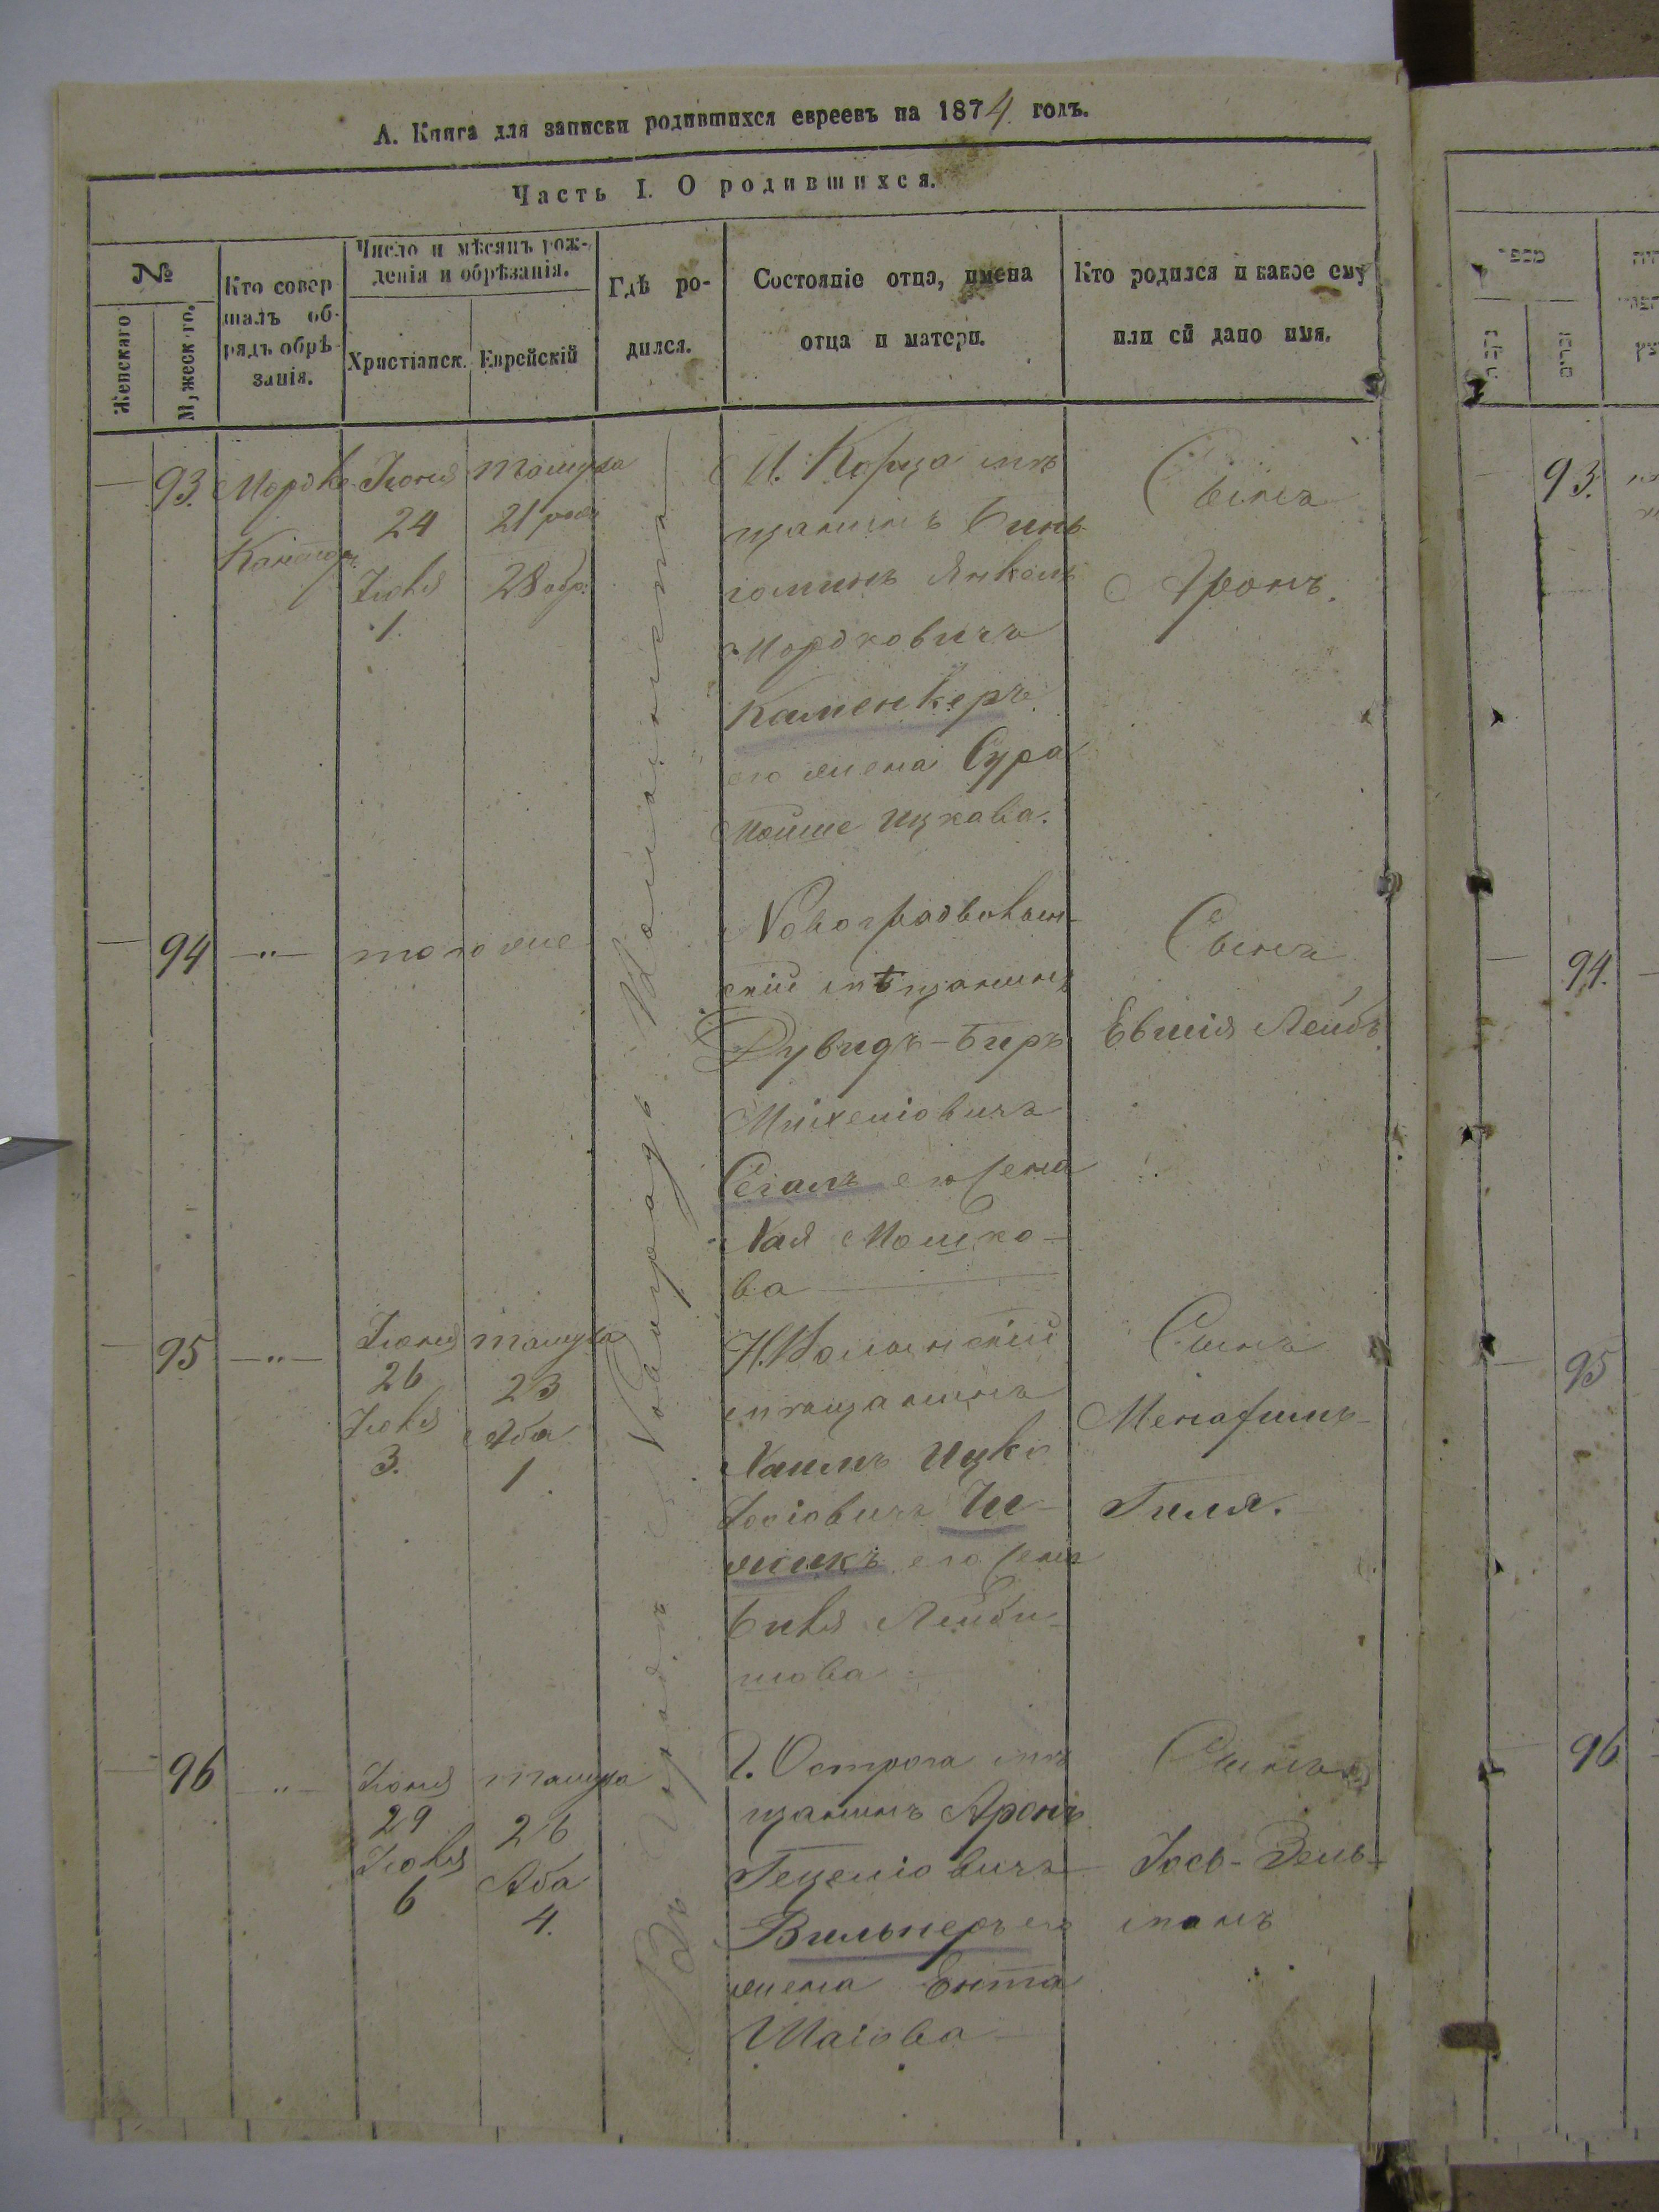 А. Книга для записки родившихся евреевъ на 1874 годъ.
Часть I. О родившихся.
№
Женскаго
Мужеск-го.
Кто совер
шалъ об-
рядъ обрѣ
занія.
Число и мѣсяцъ рож-
денія и обрѣзанія.
Христіанск.
Еврейскій
Гдѣ ро-
дился.
Состояніе отца, имена
отца и матери.
Кто родился и какое ему
или ей дано имя.
93.
Мордко
Іюня
24
Іюля
1.
Тамуза
21 родил
28 обр.
Въ Городѣ Новоградъ Волынскѣ
М. Корца мѣ
щанинъ Бинь
Янкель
Мордковичъ
Каменкеръ
его жена Сура
Мойше Ицкова.
Сынъ
Аронъ.
94
—"—
тоже
Новоградволын-
скій мѣщанинъ
Дувидъ-Беръ
Сегалъ его жена
Хая Мошко-
ва
Сынъ
Евшія Лейбъ
95
—"—
Іюня
26
Іюля
3.
Тамуза
23
Аба
1.
Н. Волынскій
мѣщанинъ
Хаимъ Ицко
Іосіовичъ
его жена
Лейби-
шова
Сынъ
Менашшъ-
Гиля.
96
—"—
Іюня
29
Іюля
6
Тамуза
26
Аба
4.
Г. Острога мѣ
щанинъ Аронъ
Гецеліовичъ
Вильнеръ его
жена Ента
Шаіова
Сынъ
Іось-Зель-
манъ
מספר
93.
94.
95
96